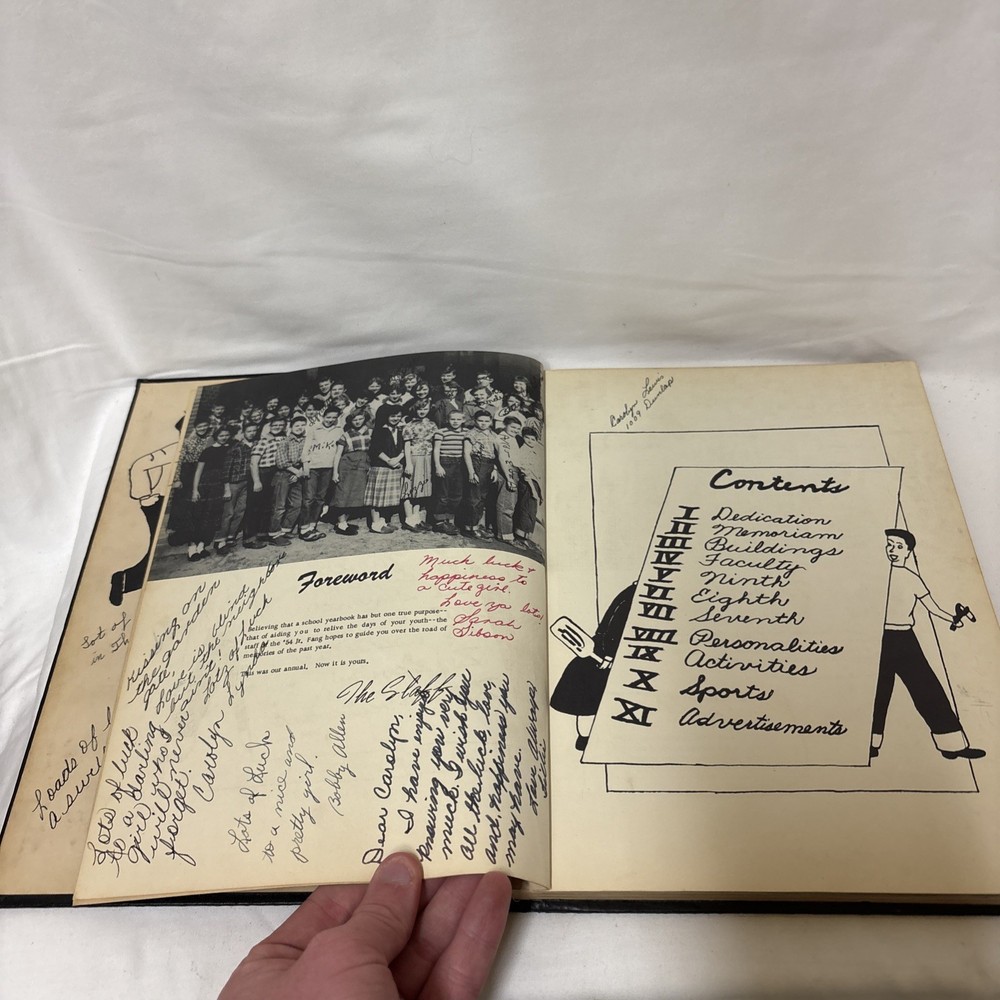 Foreword
Believing that a school yearbook has but one true purpose--
that of aiding you to relive the days of your youth--the
staff of the '54 Jr. Fang hopes to guide you over the road of
memories of the past year.
This was our annual. Now it is yours.
The Staff
Much luck +
happiness to
a cute girl.
Love ya lots!
Sarah
Gibson
Lots of luck
to a darling
girl who I
will never
forget.
Carolyn
Lots of Luck
to a nice and
pretty girl.
Bobby Allen
Dear Carolyn,
I have enjoyed
knowing you very
much. I wish you
all the luck, love,
and happiness you
may have.
Love Always
Kissing on
Lot of
in
Loads of
a
Carolyn Lewis
1009 Dunlap
Contents
I Dedication
II Memoriam
III Buildings
IV Faculty
V Ninth
VI Eighth
VII Seventh
VIII Personalities
IX Activities
X Sports
XI Advertisements